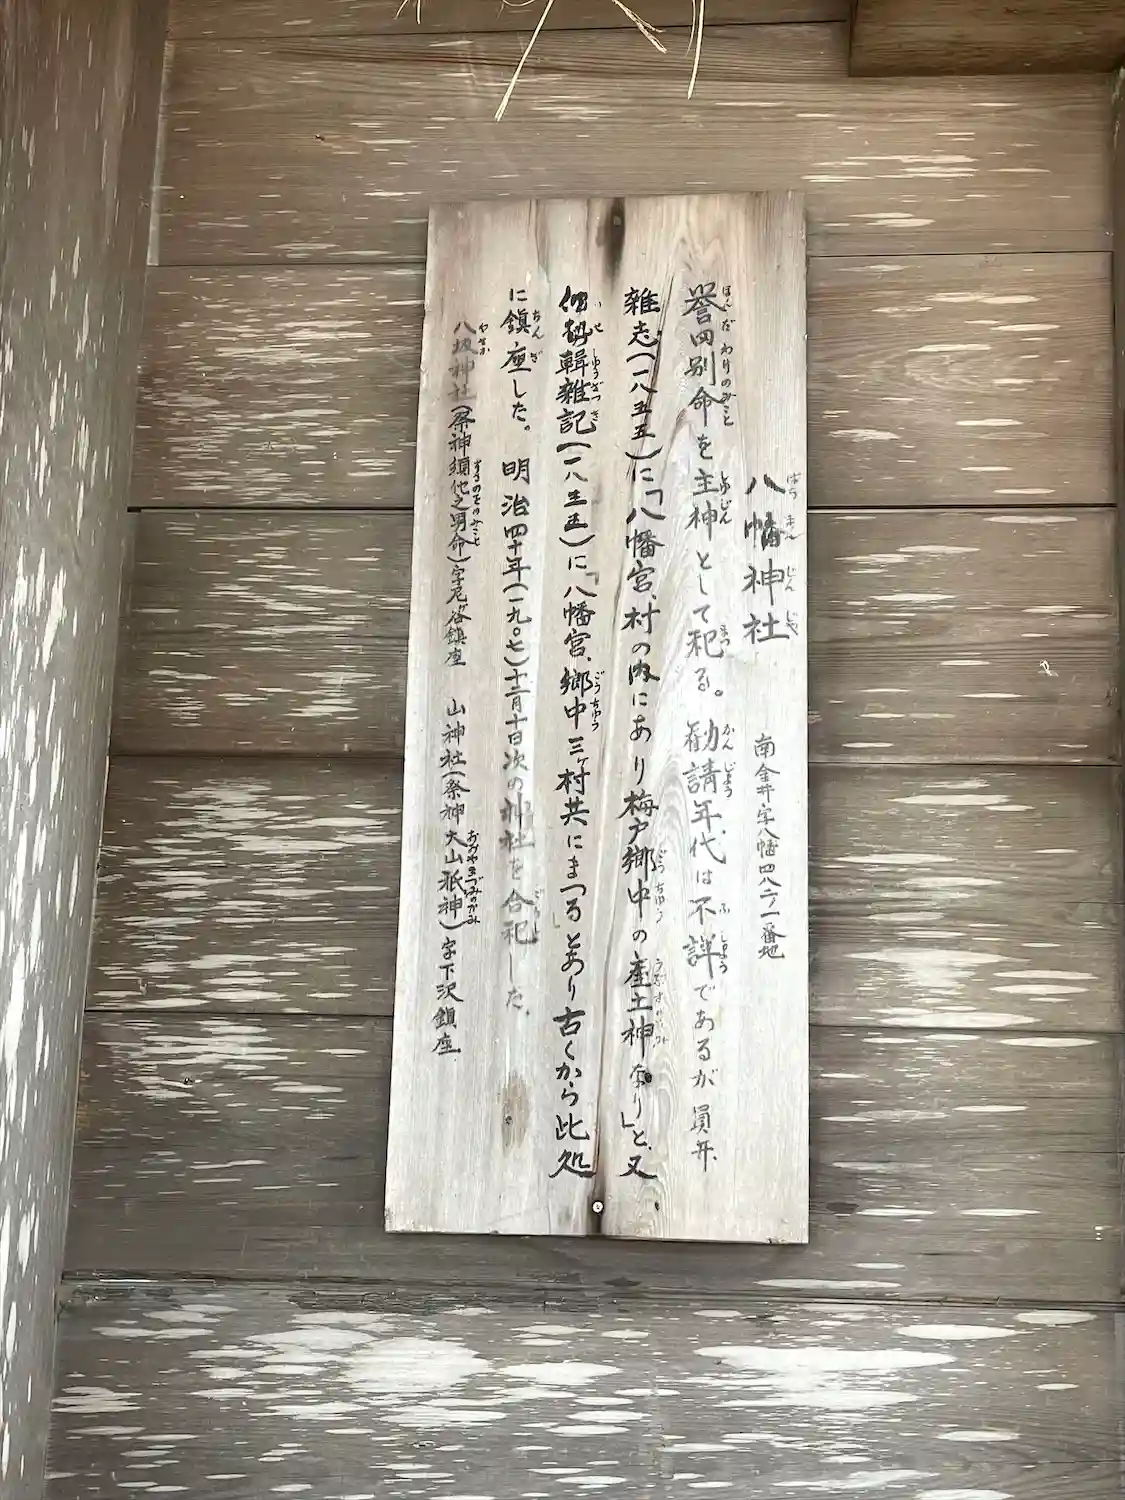 八幡神社　南金井字八幡四八二ノ一番地
誉田別命を主神として祀る。勧請年代は不詳であるが員弁
雑志（一八五五）に「八幡宮、村の内にあり梅戸郷中の産土神なり」と、又
伊勢輯雑記（一八三五）に「八幡宮、郷中三ヶ村共にまつる」とあり古くから此処
に鎮座した。明治四十年（一九〇七）十二月十日次の神社を合祀した。
八坂神社（祭神須佐之男命）字尼ヶ谷鎮座　山神社（祭神大山祇神）字下沢鎮座